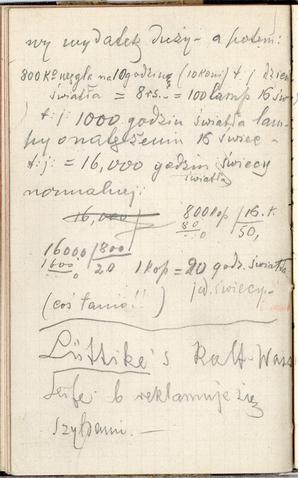 wy wydatek duży - a potem:
800 Ko węgla na 10 godzinę (10 koni) t. j. dzień
światła = 8 rs. = 100 lamp 16 św
t. j. 1000 godzin światła lam-
py o natężeniu 16 świec -
t. j. = 16,000 godzin świecy
światła
normalnej:
16,000
800 kop / 16. t.
80 / 50,
0
16000 / 800
1600 / 20
0
1 kop = 20 godz. światła
jd. świecy -
(coś tanio!! )
Lüttike's Kalt-Wass
Seife b reklamuje się
szyldami. —